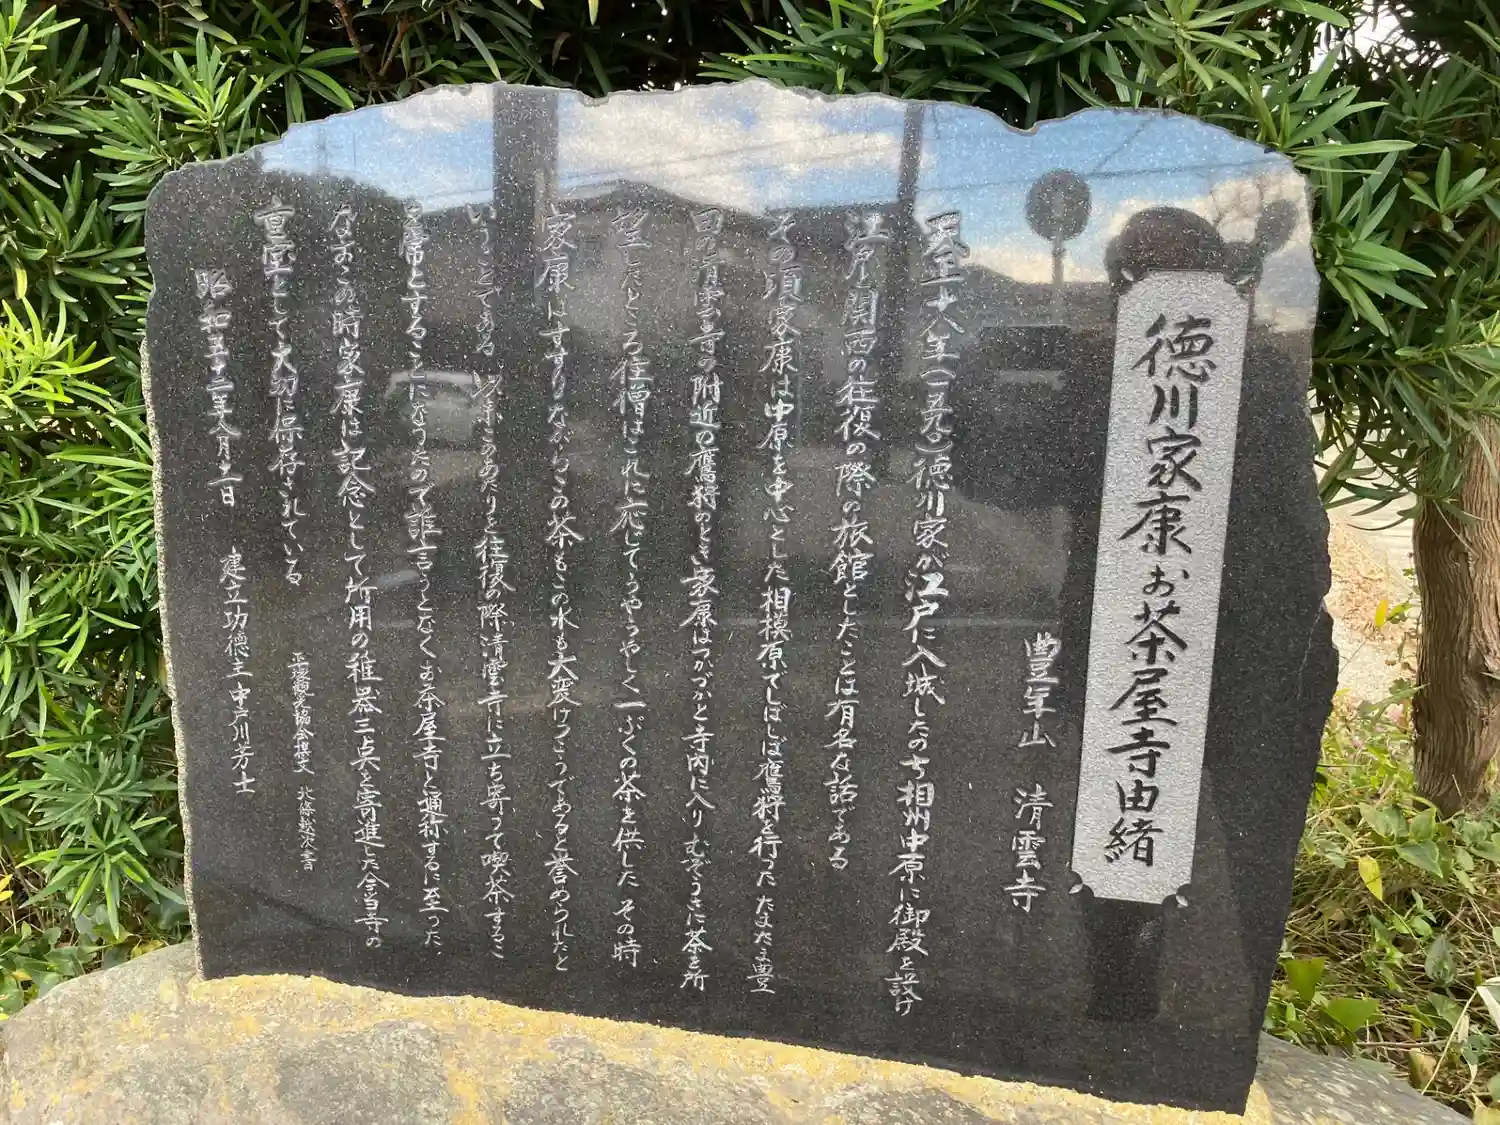 徳川家康お茶屋寺由緒
豊年山 清雲寺
天正十八年(一五九〇)徳川家が江戸に入城したのち相州中原に御殿を設け
江戸と関西の往復の際の旅館としたことは有名な話である
その頃家康は中原を中心とした相模原でしばしば鷹狩を行うた たまたま豊
田の清雲寺の附近の鷹狩のとき家康はつかつかと寺内に入り むぞうさに茶を所
望したところ住僧はこれに応じてうやうやしく一ぷくの茶を供した その時
家康はすすりながらこの茶もこの水も大変けっこうであると誉められたと
いうことである。以来このあたりを往復の際清雲寺に立ち寄って喫茶するこ
を常とすることになったので誰言うとなくお茶屋寺と通称するに至った、
なおこの時家康は記念として所用の雅器三点を寄進した今当寺の
重宝として大切に保存されている
昭和五十二年八月十一日 建立功徳主 中戸川芳士
平塚観光協会撰文 北條越次書